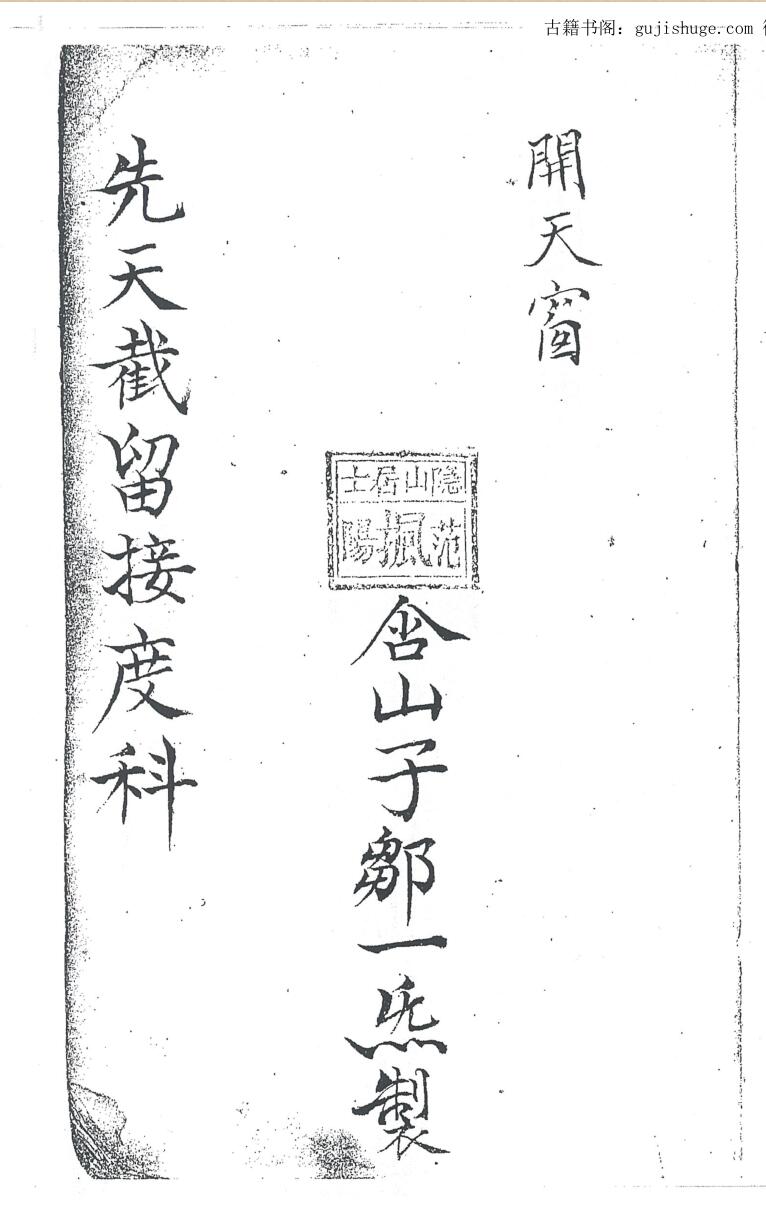 古籍书阁：gujishuge.com
開天窗
隐山居士
范
陽
含山子鄒一炁製
先天截留接度科